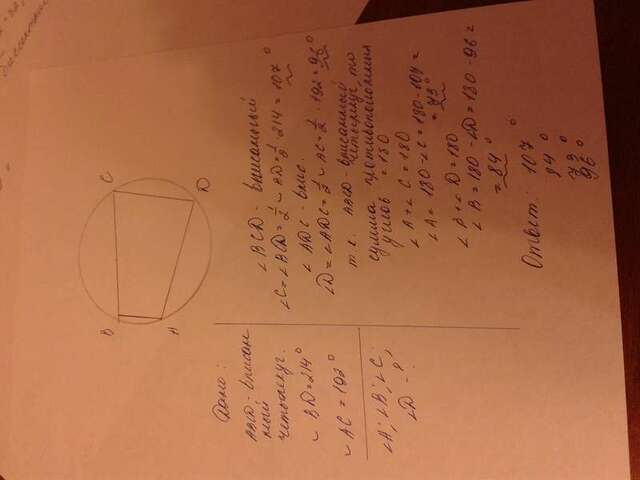 B
C
D
A
Дано:
ABCD - вписан
ный
четырехуг.
◡ BD = 214°
◡ AC = 192°
∠A; ∠B; ∠C;
∠D - ?
∠BCD - вписанный
∠C = ∠BCD = 1/2 ◡ BD = 1/2 · 214 = 107°
∠ADC - впис.
∠D = ∠ADC = 1/2 ◡ AC = 1/2 · 192 = 96°
т.к. ABCD - вписанный
четырехуг, то
сумма противоположных
углов = 180
∠A + ∠C = 180
∠A = 180 - ∠C = 180 - 107 =
= 73°
∠B + ∠D = 180
∠B = 180 - ∠D = 180 - 96 =
= 84°
Ответ: 107°
84°
73°
96°